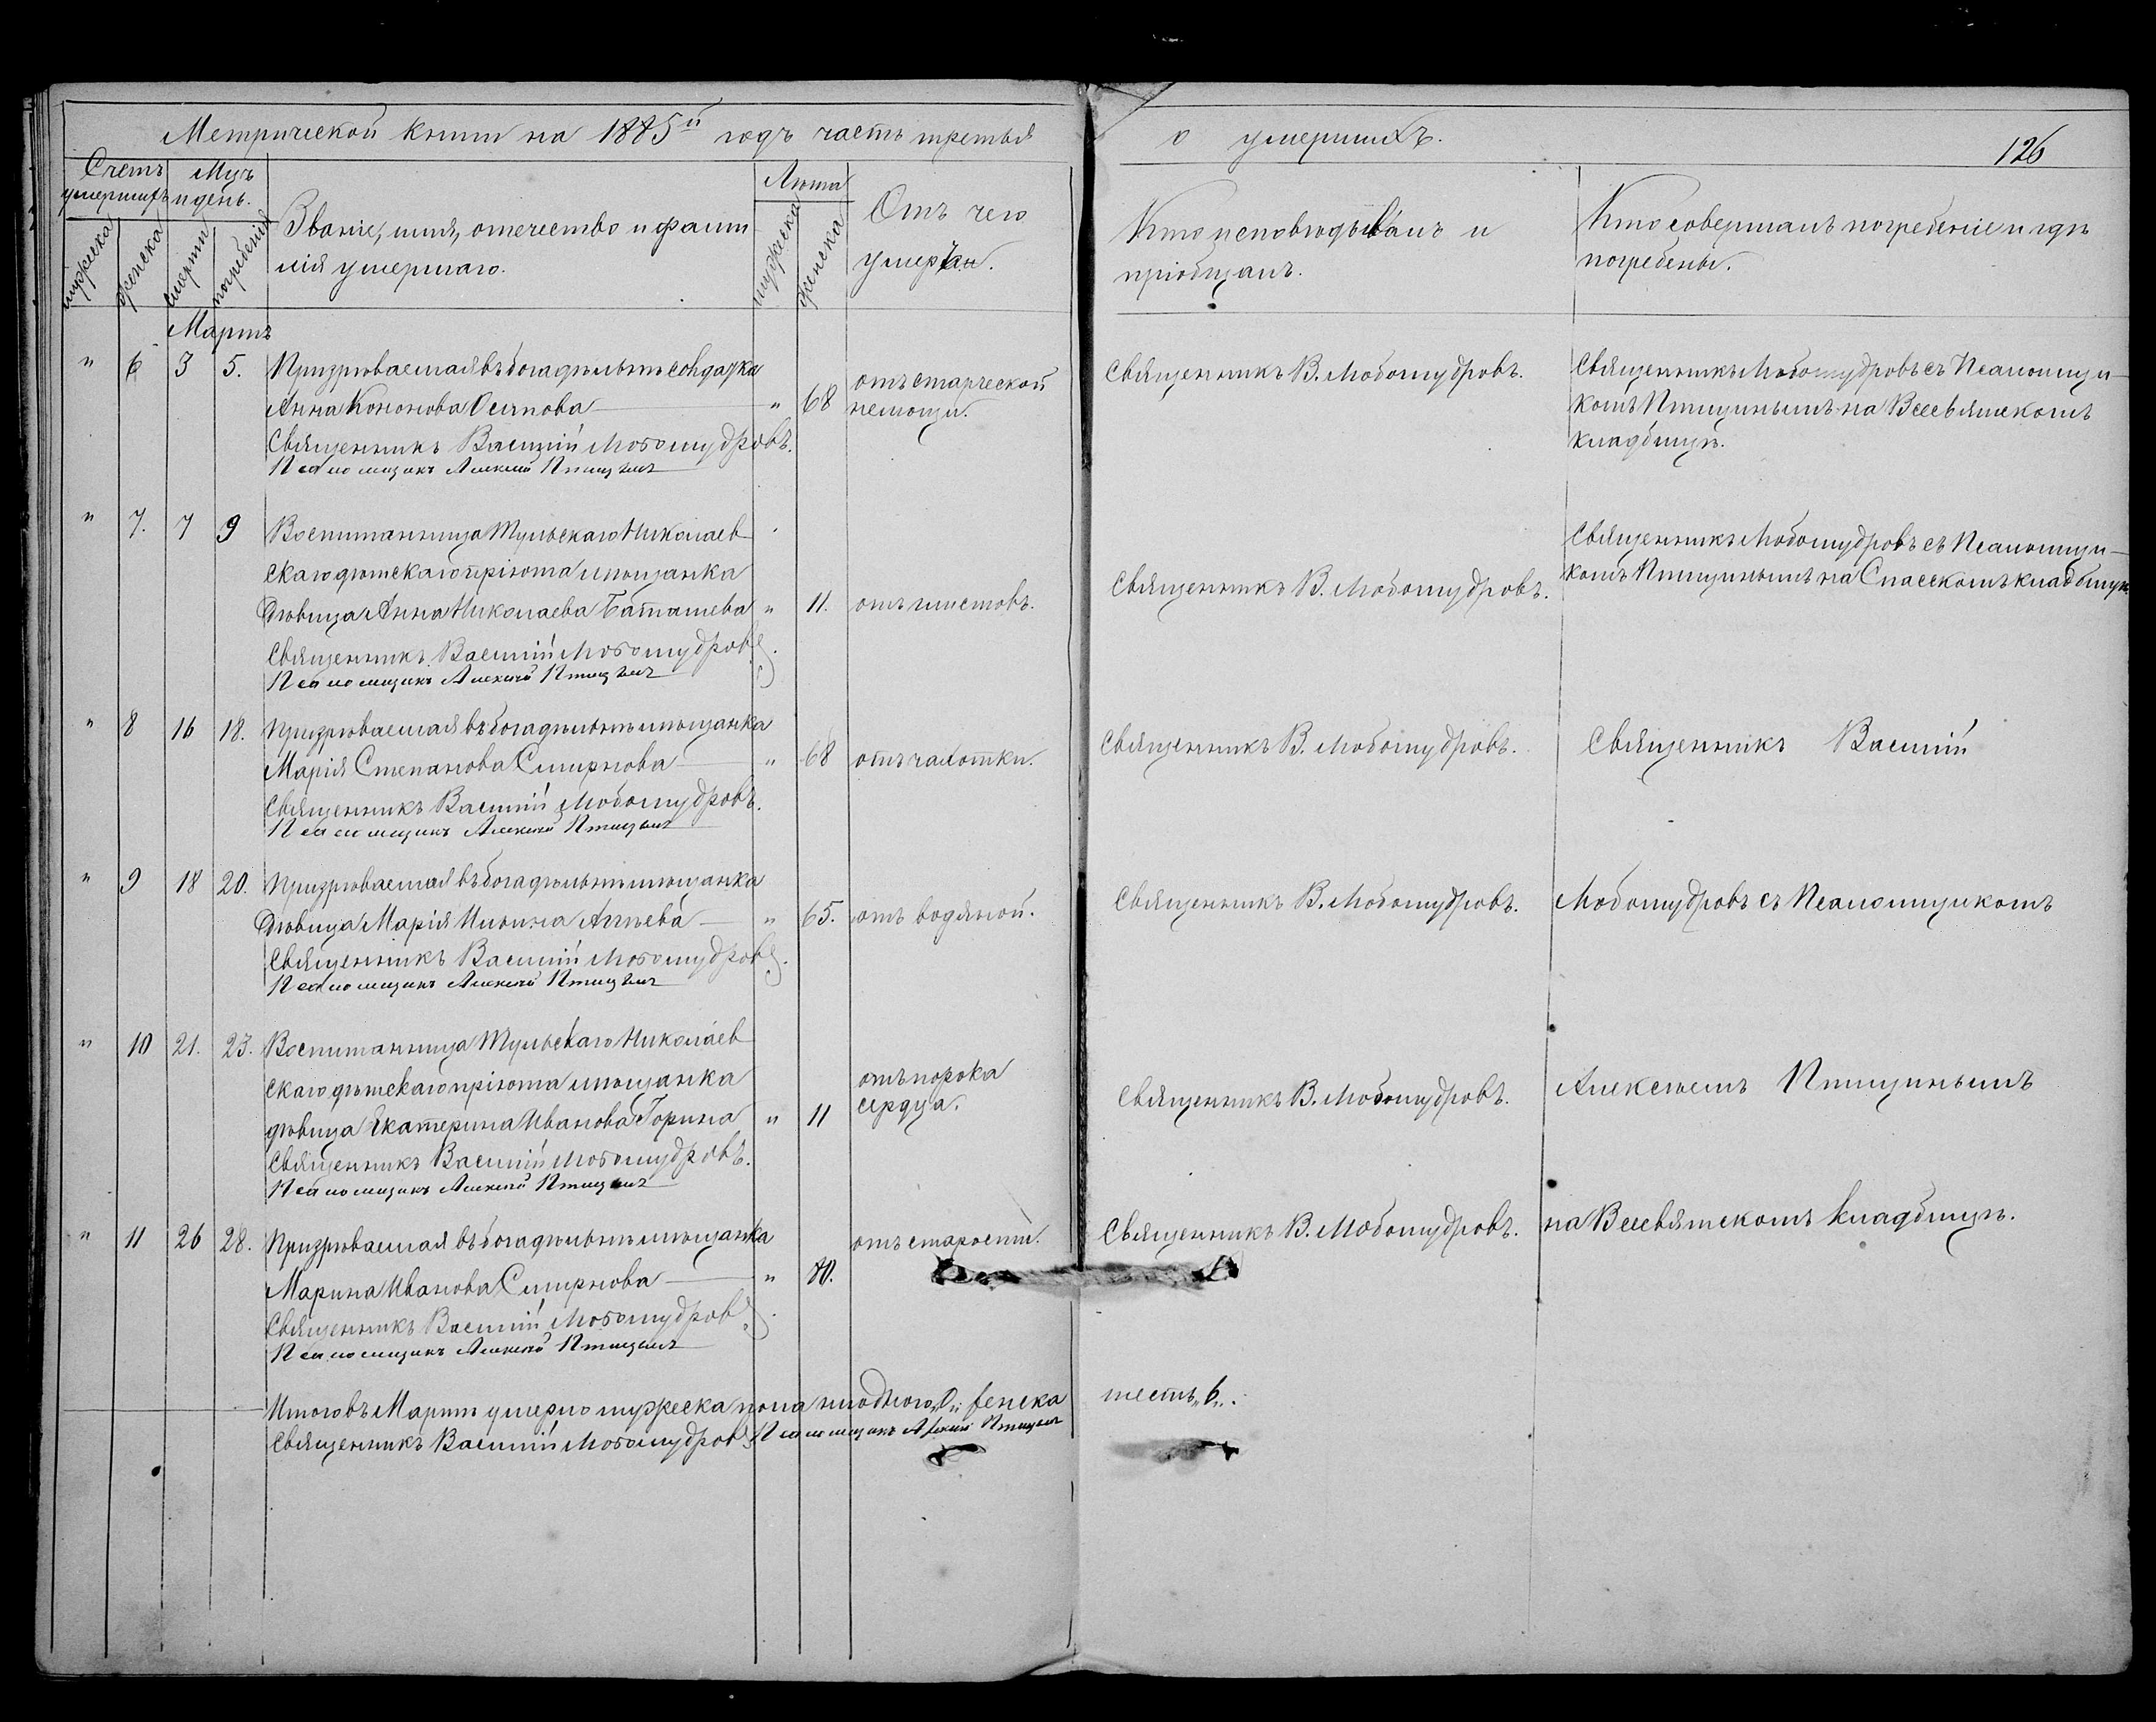 Метрической книги на 1885й годъ часть третья
о умершихъ.
126
Счетъ умершихъ
Мцъ и день.
Званіе, имя, отчество и фами
лія умершаго.
Лѣта
Отъ чего
умерли.
Кто исповѣдывалъ и
пріобщалъ.
Кто совершалъ погребеніе и гдѣ
погребены.
мужеска
женска
смерти
погребенія
мужеска
женска
Мартъ
" 6 3 5. Призрѣваемая въ богадѣльнѣ солдатка
Анна Кононова Осипова " 68 отъ старческой
немощи.
Священникъ Василій Любомудровъ.
Псаломщикъ Алексѣй Птицынъ
Священникъ В. Любомудровъ.
Священникъ Любомудровъ съ Псаломщи-
комъ Птицынымъ на Всесвятскомъ
кладбищѣ.
" 7. 7 9 Воспитанница Тульскаго Николаев
скаго дѣтскаго пріюта мѣщанка
дѣвица Анна Николаева Баташева " 11. отъ глистовъ.
Священникъ Василій Любомудровъ.
Псаломщикъ Алексѣй Птицынъ
Священникъ В. Любомудровъ.
Священникъ Любомудровъ съ Псаломщи-
комъ Птицынымъ на Спасскомъ кладбищѣ.
" 8 16 18. Призрѣваемая въ богадѣльнѣ мѣщанка
Марія Степанова Смирнова " 68 отъ чахотки.
Священникъ Василій Любомудровъ.
Псаломщикъ Алексѣй Птицынъ
Священникъ В. Любомудровъ.
Священникъ Василій
" 9 18 20. Призрѣваемая въ богадѣльнѣ мѣщанка
Дѣвица Марія Ильина " 65. отъ водяной.
Священникъ Василій Любомудровъ.
Псаломщикъ Алексѣй Птицынъ
Священникъ В. Любомудровъ.
Любомудровъ съ Псаломщикомъ
" 10 21. 23. Воспитанница Тульскаго Николаев
скаго дѣтскаго пріюта мѣщанка
дѣвица Екатерина Иванова Горина " 11 отъ порока
сердца.
Священникъ Василій Любомудровъ.
Псаломщикъ Алексѣй Птицынъ
Священникъ В. Любомудровъ.
Алексѣемъ Птицынымъ
" 11 26 28. Призрѣваемая въ богадѣльнѣ мѣщанка
Марина Иванова Смирнова " 80. отъ старости.
Священникъ Василій Любомудровъ.
Псаломщикъ Алексѣй Птицынъ
Священникъ В. Любомудровъ.
на Всесвятскомъ кладбищѣ.
Итого въ Мартѣ умерло мужеска пола ни одного „0„ женска
шесть „6„.
Священникъ Василій Любомудровъ Псаломщикъ Алексѣй Птицынъ